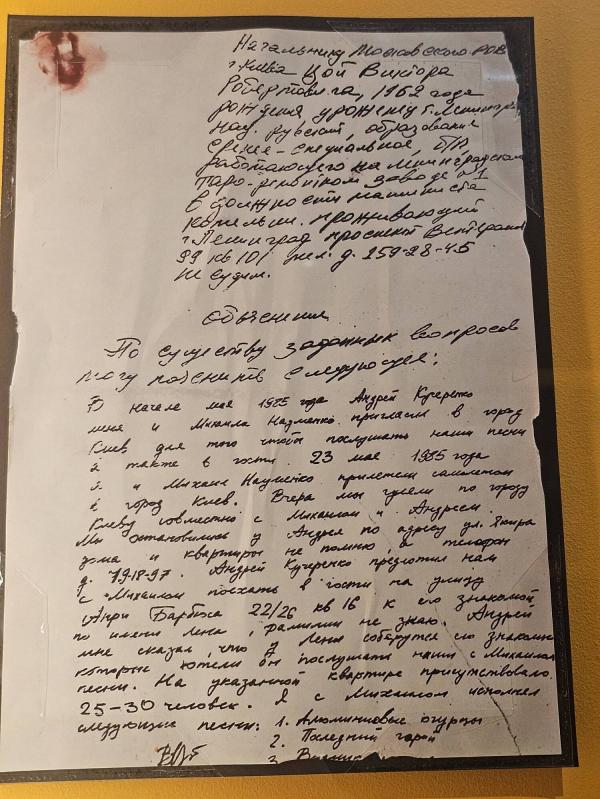 Начальнику Московского РОВ
г. Киева Цой Виктора
Робертовича, 1962 года
рождения уроженец г. Ленинград
нац. русский, образование
средне-специальное, б/п
работающего на Ленинградском
заводе №1
в должности машиниста
котельн. проживающий
г. Ленинград проспект Ветеранов
99 кв 101 тел. д. 259-28-45
не судим.
Объяснения
По существу заданных вопросов
могу пояснить следующее:
В начале мая 1985 года Андрей Кучеренко
меня и Михаила Науменко пригласил в город
Киев для того чтобы послушать наши песни
а также в гости. 23 мая 1985 года
я и Михаил Науменко прилетели самолетом
в город Киев. Вчера мы гуляли по городу
Киеву совместно с Михаилом и Андреем.
Мы остановились у Андрея по адресу ул. Якира
дома и квартиры не помню, а телефон
Андрей Кучеренко предложил нам
с Михаилом поехать в гости на улицу
Анри Барбюса 22/26 кв 16 к его знакомой
по имени Лена, фамилии не знаю. Андрей
мне сказал, что у Лены соберутся его знакомые
которые хотели бы послушать наши с Михаилом
песни. На указанной квартире присутствовало
25-30 человек. Я с Михаилом исполнял
следующие песни: 1. Алюминиевые огурцы
2. Последний герой
3.